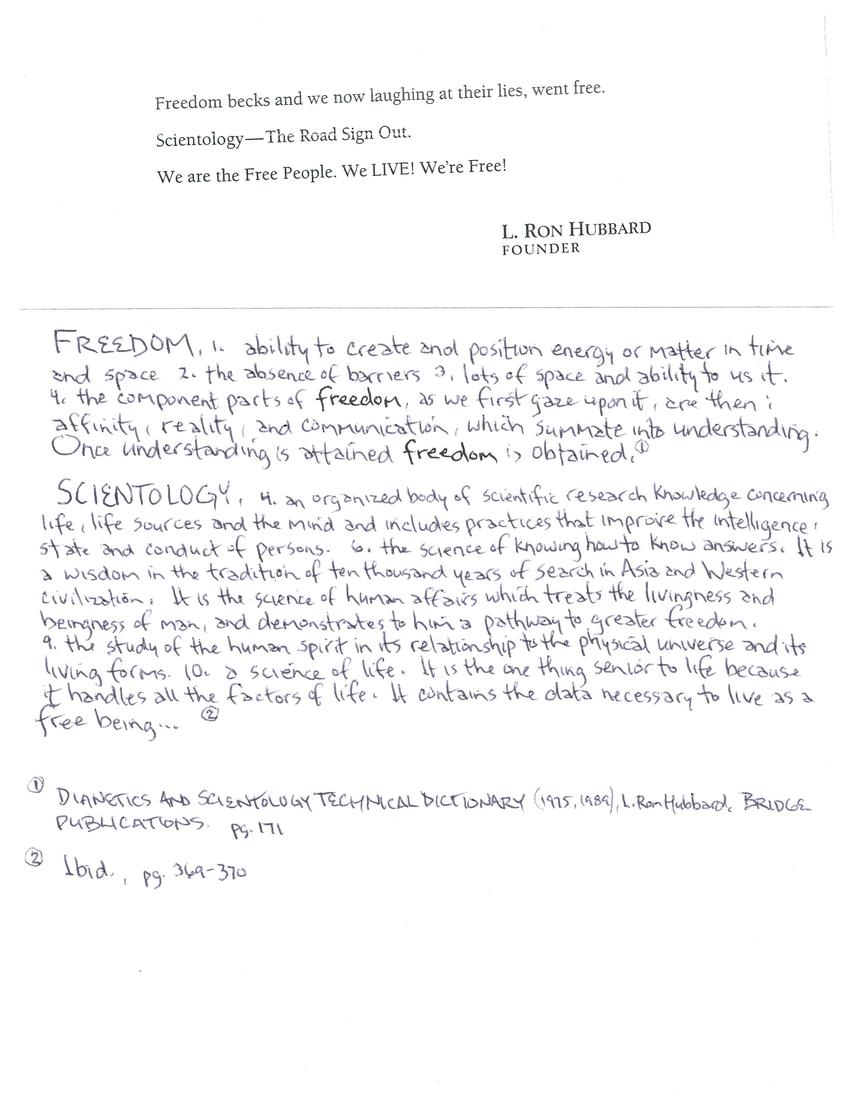 Freedom becks and we now laughing at their lies, went free.
Scientology—The Road Sign Out.
We are the Free People. We LIVE! We're Free!
L. RON HUBBARD
FOUNDER
FREEDOM, 1. ability to create and position energy or matter in time
and space 2. the absence of barriers 3. lots of space and ability to us it.
4. the component parts of freedom, as we first gaze upon it, are then:
affinity, reality, and communication, which summate into understanding.
Once understanding is attained freedom is obtained.①
SCIENTOLOGY, 4. an organized body of scientific research knowledge concerning
life, life sources and the mind and includes practices that improve the intelligence,
state and conduct of persons. 6. the science of knowing how to know answers. It is
a wisdom in the tradition of ten thousand years of search in Asia and Western
civilization. It is the science of human affairs which treats the livingness and
beingness of man, and demonstrates to him a pathway to greater freedom.
9. the study of the human spirit in its relationship to the physical universe and its
living forms. 10. a science of life. It is the one thing senior to life because
it handles all the factors of life. It contains the data necessary to live as a
free being... ②
① DIANETICS AND SCIENTOLOGY TECHNICAL DICTIONARY (1975, 1989), L. Ron Hubbard, BRIDGE
PUBLICATIONS. pg. 171
② Ibid., pg. 369-370